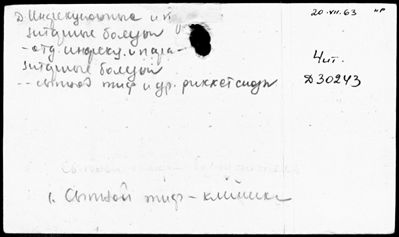 Д Инфекционные и п
зитарные болезни
- отд. инфекц. и пара-
зитарные болезни
-- сыпной тиф и др. риккетсиозы
20.VII.63
Чит.
Д30243
1. Сыпной тиф - клиника